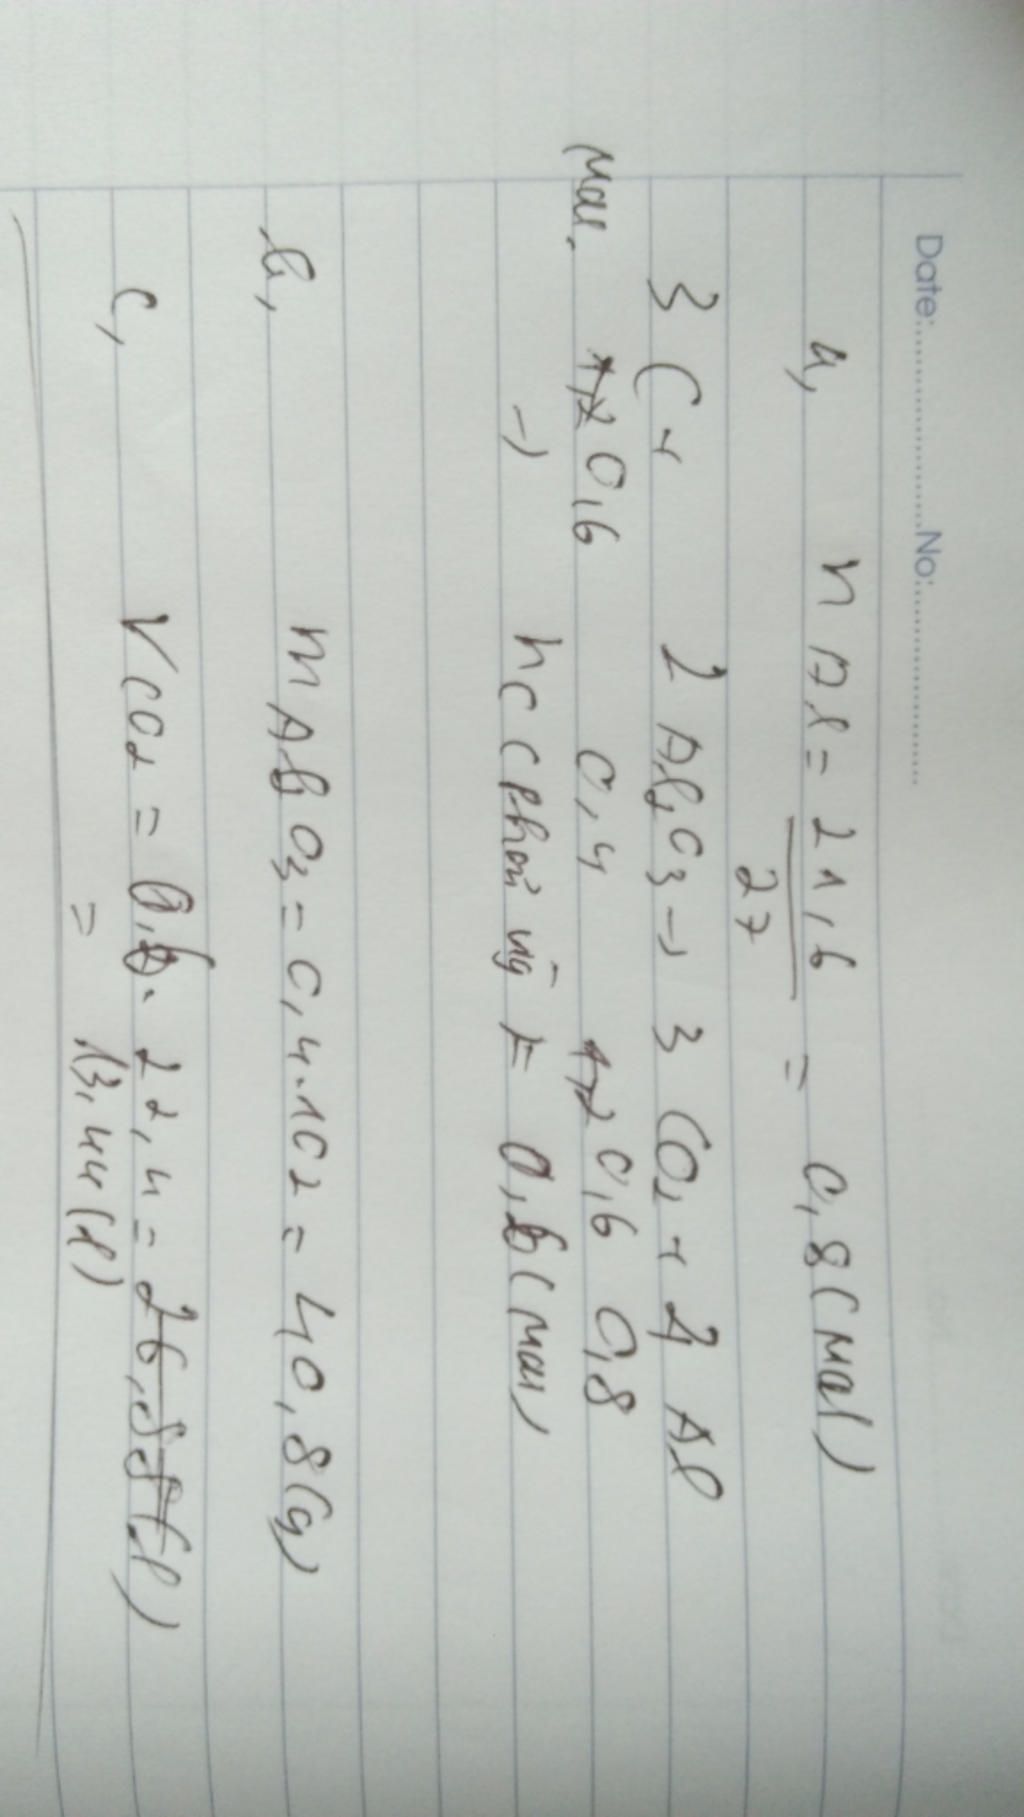 Date:....................No:....................
a, n Al = 21,6 / 27 = 0,8 (mol)
3 C + 2 Al2O3 → 3 CO2 + 4 Al
mol. 1,2 0,6 0,4 1,2 0,6 0,8
→ nC (phản ứg) = 0,6 (mol)
b, m Al2O3 = 0,4.102 = 40,8 (g)
c, VCO2 = 0,6. 22,4 = 26,88 (l)
= 13,44 (l)